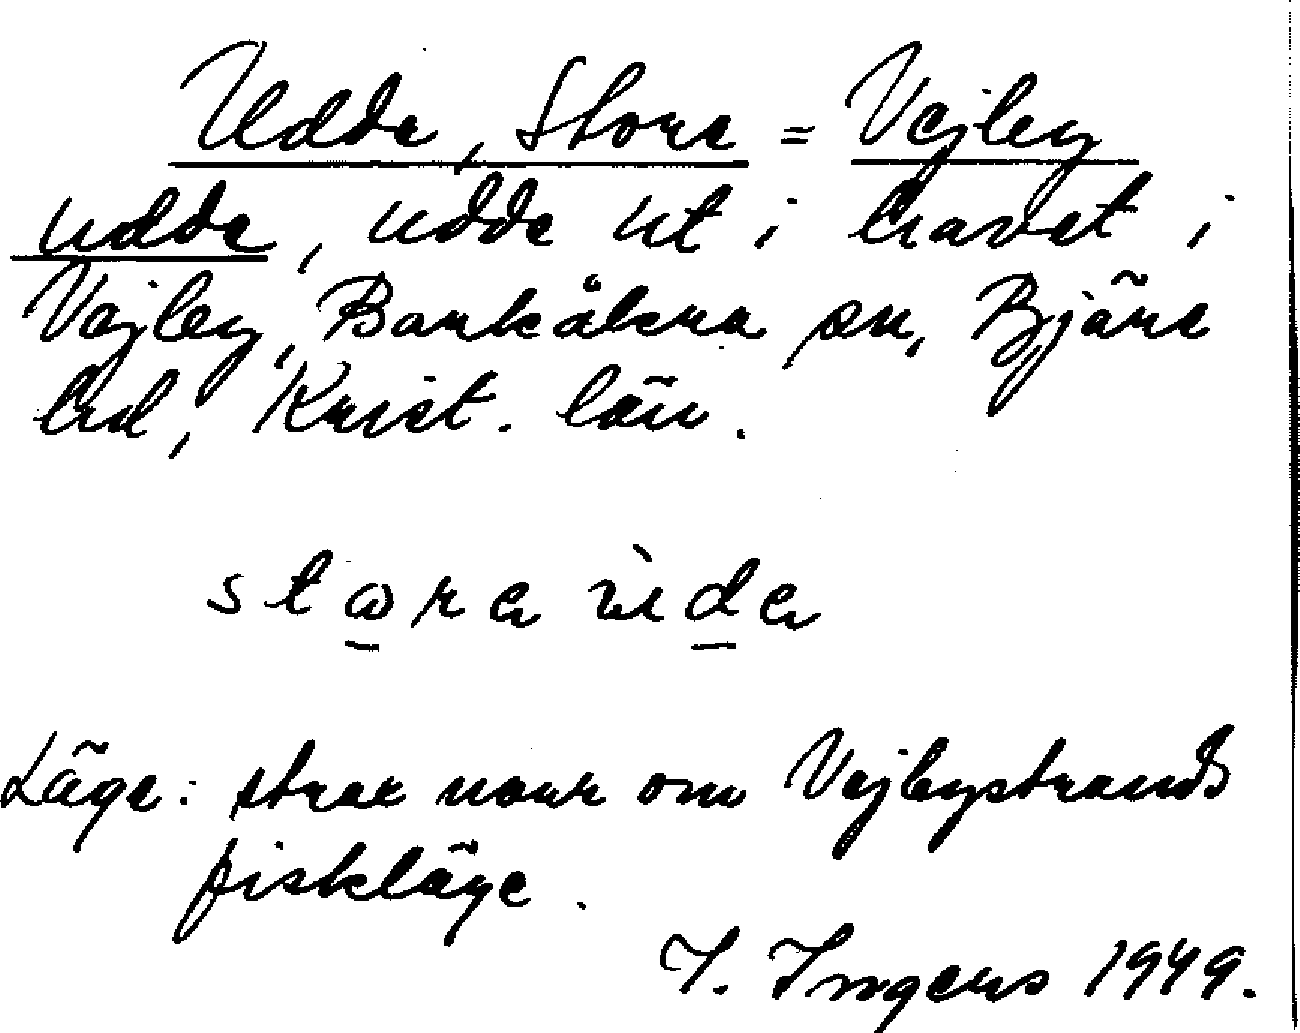 Udde, Store = Vejby
udde, udde ut i havet i
Vejby, Barkåkra sn, Bjäre
hd, Krist. län.
Läge: strax norr om Vejbystrands
fiskläge.
I. Ingers 1949.